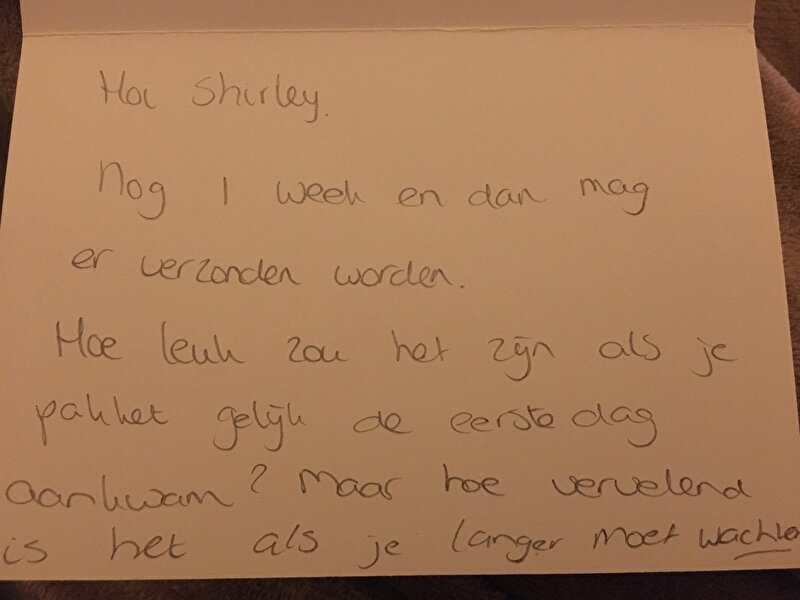 Hoi Shirley.
Nog 1 week en dan mag
er verzonden worden.
Hoe leuk zou het zijn als je
pakket gelijk de eerste dag
aankwam? Maar hoe vervelend
is het als je langer moet wachten